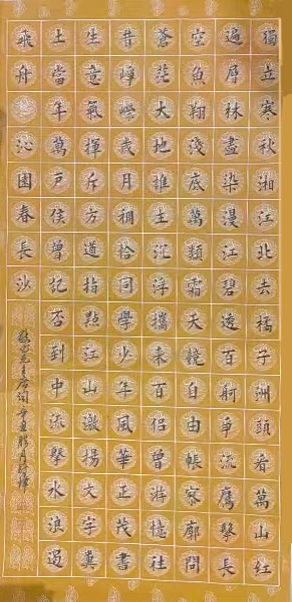 獨立寒秋湘江北去橘子洲頭看萬山紅
遍層林盡染漫江碧透百舸爭流鷹擊長
空魚翔淺底萬類霜天競自由悵寥廓問
蒼茫大地誰主沉浮攜來百侶曾游憶往
昔崢嶸歲月稠恰同學少年風華正茂書
生意氣揮斥方遒指點江山激揚文字糞
土當年萬戶侯曾記否到中流擊水浪遏
飛舟沁園春長沙
毛主席詞辛丑臘月